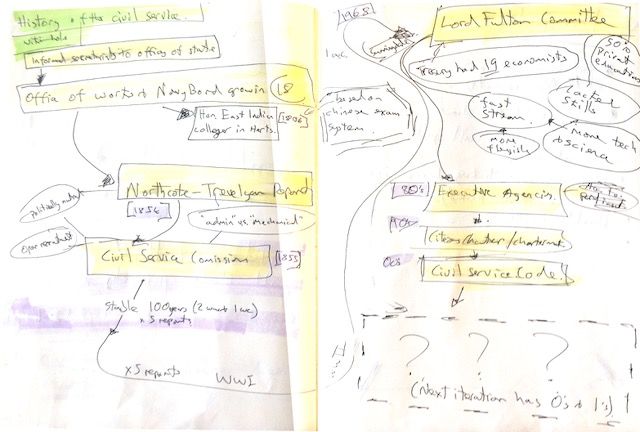 History of the civil service.
wiki hole
Informal secretariats to offices of state
Office of works + Navy Board growin 18
Hon East Indian
college in Herts.
[1806]
Northcote-Trevelyan Report
[1854]
politically neutral
"admin" vs. "mechanical"
open recruitment
Civil Service Comission
[1855]
stable 100 years (2 wars 1 wc)
x 5 reports
x 5 reports
WWI
1965
Lord Fulton Committee
Treasury had 19 economists
50%
private
education
lacked
skills
fast
stream
more
flexibly
more tech
+ science
based on
chinese exam
system
80's
Executive Agencies
90s
Citizens Charter / chartermark
00s
Civil Service Code
? ? ?
(Next iteration has 0's + 1's)